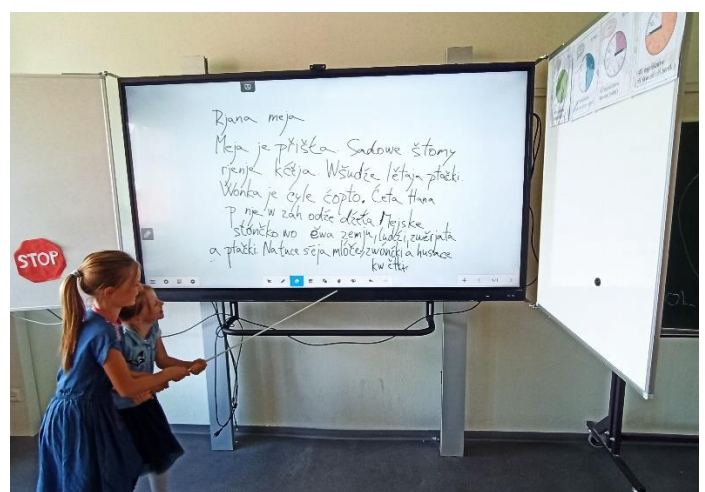 Rjana meja
Meja je přišła. Sadowe štomy
rjenje kćěja. Wšudźe lětaja ptački.
Wonka je cyle ćopło. Ćeta Hana
p nje w zah odźe dźěła. Mejske
słónčko wo ěwa zemju, ludźi, zwěrjata
a ptački. Na łuce sćeja mlóče, zwónčki a husace
kwětki
STOP